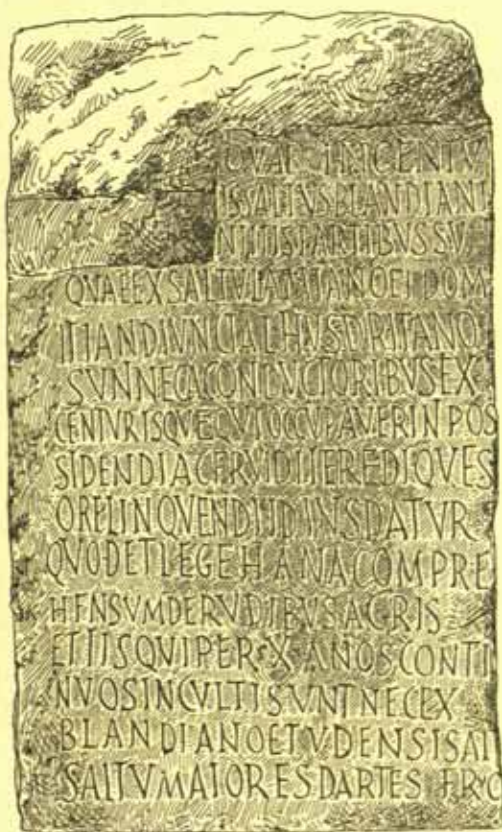 QVAE IN CENTV
IS SALTVS BLANDIANI
PARTIBVS SV
QVAE EX SALTV LAMIANO ET DOM
ITIANO IVNCTA THVSDRITANO
SVNT NEC A CONDVCTORIBVS EX
CENTVRISQVE QVI OCCVPAVERINT POS
SIDENDI AC FRVENDI EREDIQVE S
O RELINQVENDI ID IVS DATVR
QVOD ET LEGE HANA COMPRE
HENSVM DE RVDIBVS AGRIS
ET IIS QVI PER X ANOS CONTI
NVOS INCVLTI SVNT NEC EX
BLANDIANO ET VDENSI SAL
SALTV MAIORES PARTES FRVC